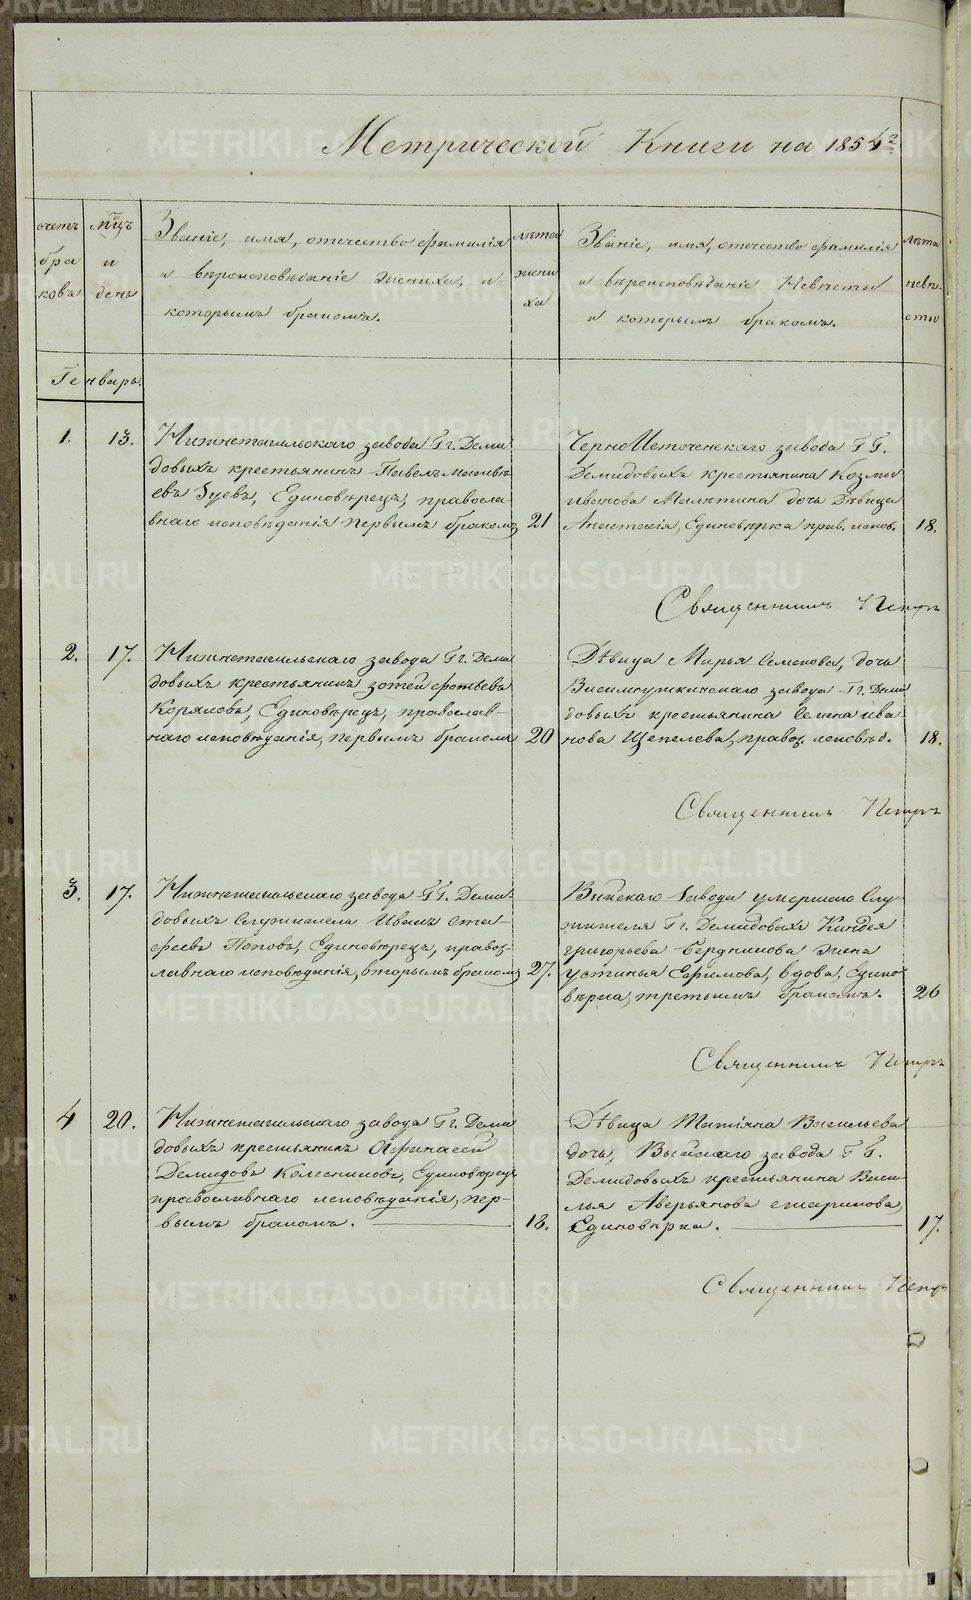 Метрической Книги на 1854
счетъ
бра
ковъ
мцъ
и
день
Званіе, имя, отечество фамилія
и вѣроисповѣданіе жениха, и
которымъ бракомъ.
лѣта
жени
ха
Званіе, имя, отечество фамилія
и вѣроисповѣданіе Невѣсты
и которымъ бракомъ.
лѣта
невѣ-
сты
Генварь.
1. 13.
Нижнетагильскаго завода Гг. Деми
довыхъ крестьянинъ Павелъ Матвѣ
евъ Зуевъ, Единовѣрецъ, правосла-
внаго исповѣданія первымъ бракомъ
21
ЧерноИсточенскаго завода Г Г.
Демидовыхъ крестьянина Козмы
Иванова Малѣтина дочь Дѣвица
Анастасія, Единовѣрка прав. испов.
18.
Священникъ Петръ
2. 17.
Нижнетагильскаго завода Гг. Деми
довыхъ крестьянинъ Зотей Фотѣевъ
Коряковъ, Единовѣрецъ, православ-
наго исповѣданія, первымъ бракомъ
20
Дѣвица Марья Семенова, дочь
Висимоуткинскаго завода Гг. Деми
довыхъ крестьянина Семена Ива
нова Щепелева, правос. исповѣд.
18.
Священникъ Петръ
3. 17.
Нижнетагильскаго завода ГГ. Деми-
довыхъ Служителя Иванъ
Поповъ, Единовѣрецъ, правос-
лавнаго исповѣданія, вторымъ бракомъ
27.
Выйскаго Завода умершаго Слу
жителя Гг. Демидовыхъ
григорьева Бердникова жена
устинья Ефимова, вдова, Едино
вѣрка, третьимъ бракомъ.
26
Священникъ Петръ
4 20.
Нижнетагильскаго завода Гг. Деми
довыхъ крестьянинъ Афанасей
Демидовъ Колесниковъ, Единовѣрецъ
православнаго исповѣданія, пер-
вымъ бракомъ.
18.
Дѣвица Татіяна Васильева
дочь, Выйскаго завода Г Г.
Демидовыхъ крестьянина Васи-
лья Аверьянова
Единовѣрка.
17.
Священникъ Петръ
METRIKI.GASO-URAL.RU